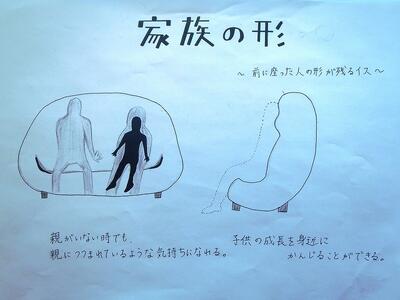 家族の形
～前に座った人の形が残るイス～
親がいない時でも、
親につつまれているような気持ちになれる。
子供の成長を身近に
かんじることができる。